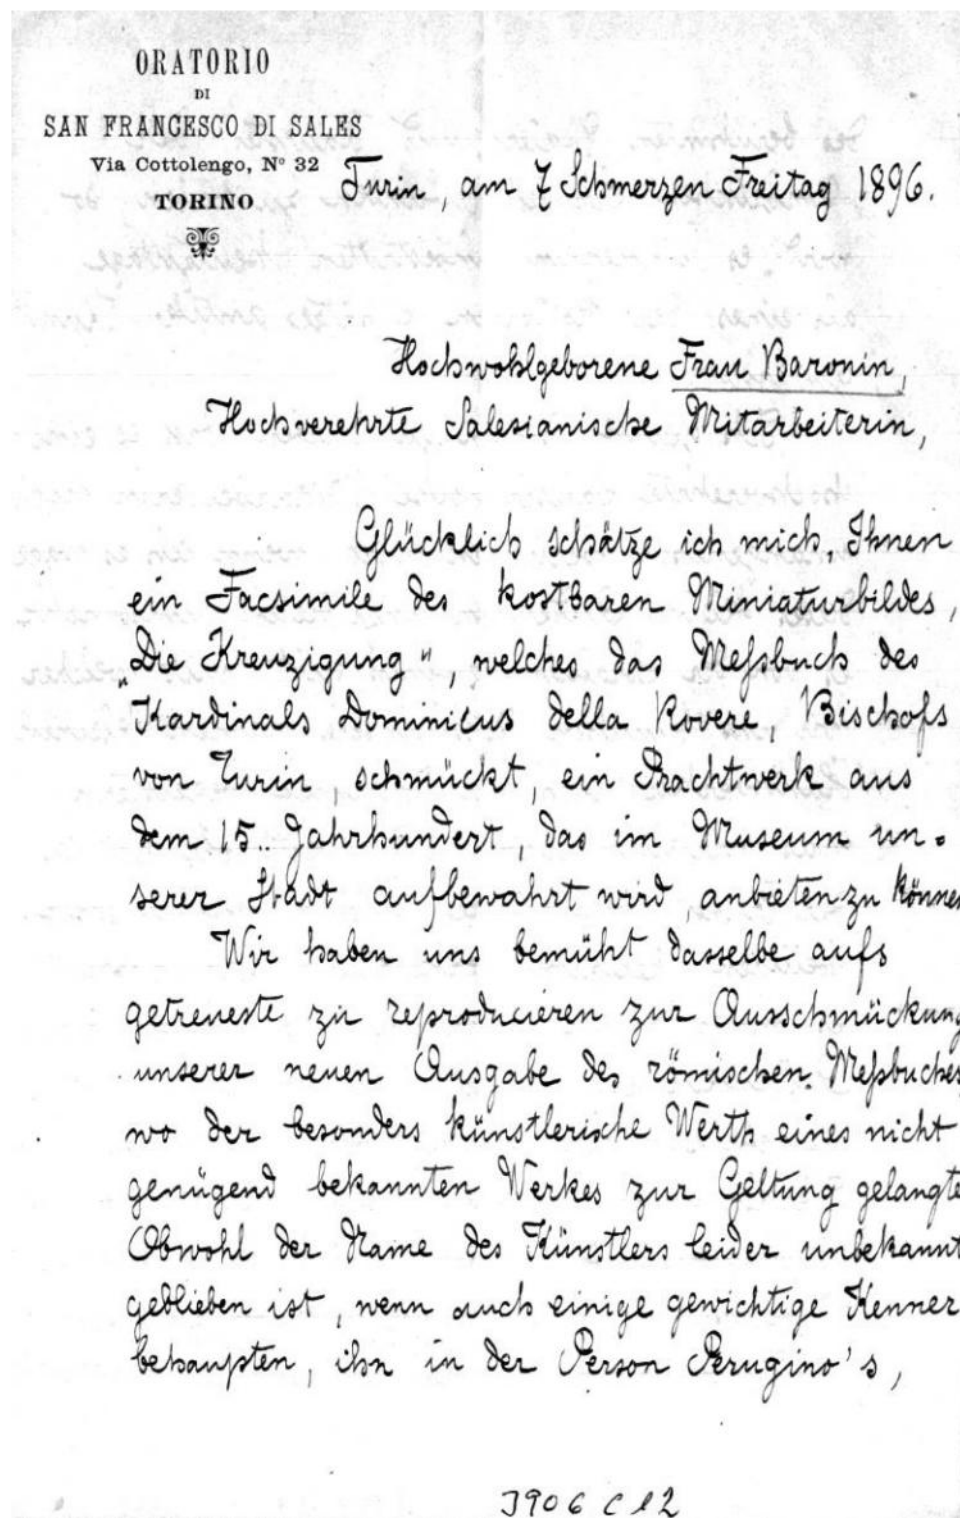 ORATORIO
DI
SAN FRANCESCO DI SALES
Via Cottolengo, N° 32
TORINO
Turin, am 7 Schmerzen Freitag 1896.
Hochwohlgeborene Frau Baronin,
Hochverehrte Salesianische Mitarbeiterin,
Glücklich schätze ich mich, Ihnen
ein Facsimile des kostbaren Miniaturbildes,
„Die Kreuzigung", welches das Meßbuch des
Kardinals Dominicus della Rovere, Bischofs
von Turin, schmückt, ein Prachtwerk aus
dem 15. Jahrhundert, das im Museum un-
serer Stadt aufbewahrt wird, anbieten zu können
Wir haben uns bemüht dasselbe aufs
getreueste zu reproducieren zur Ausschmückung
unserer neuen Ausgabe des römischen Meßbuches
wo der besonders künstlerische Werth eines nicht
genügend bekannten Werkes zur Geltung gelangte
Obwohl der Name des Künstlers leider unbekannt
geblieben ist, wenn auch einige gewichtige Kenner
behaupten, ihn in der Person Perugino's,
3906 C 12